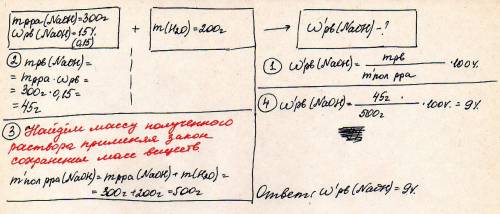 mрра(NaOH)=300г
ωрв(NaOH)=15%
(0,15)
+
m(H₂O)=200г
ω'рв(NaOH)-?
② mрв(NaOH)=
= mрра·ωрв=
= 300г·0,15=
= 45г
① ω'рв(NaOH)= mрв / m'пол рра ·100%
③ Найдём массу полученного
раствора применяя закон
сохранения масс веществ
m'пол рра(NaOH)= mрра(NaOH)+m(H₂O)=
= 300г+200г=500г
④ ω'рв(NaOH)= 45г / 500г ·100%= 9%
Ответ: ω'рв(NaOH)=9%